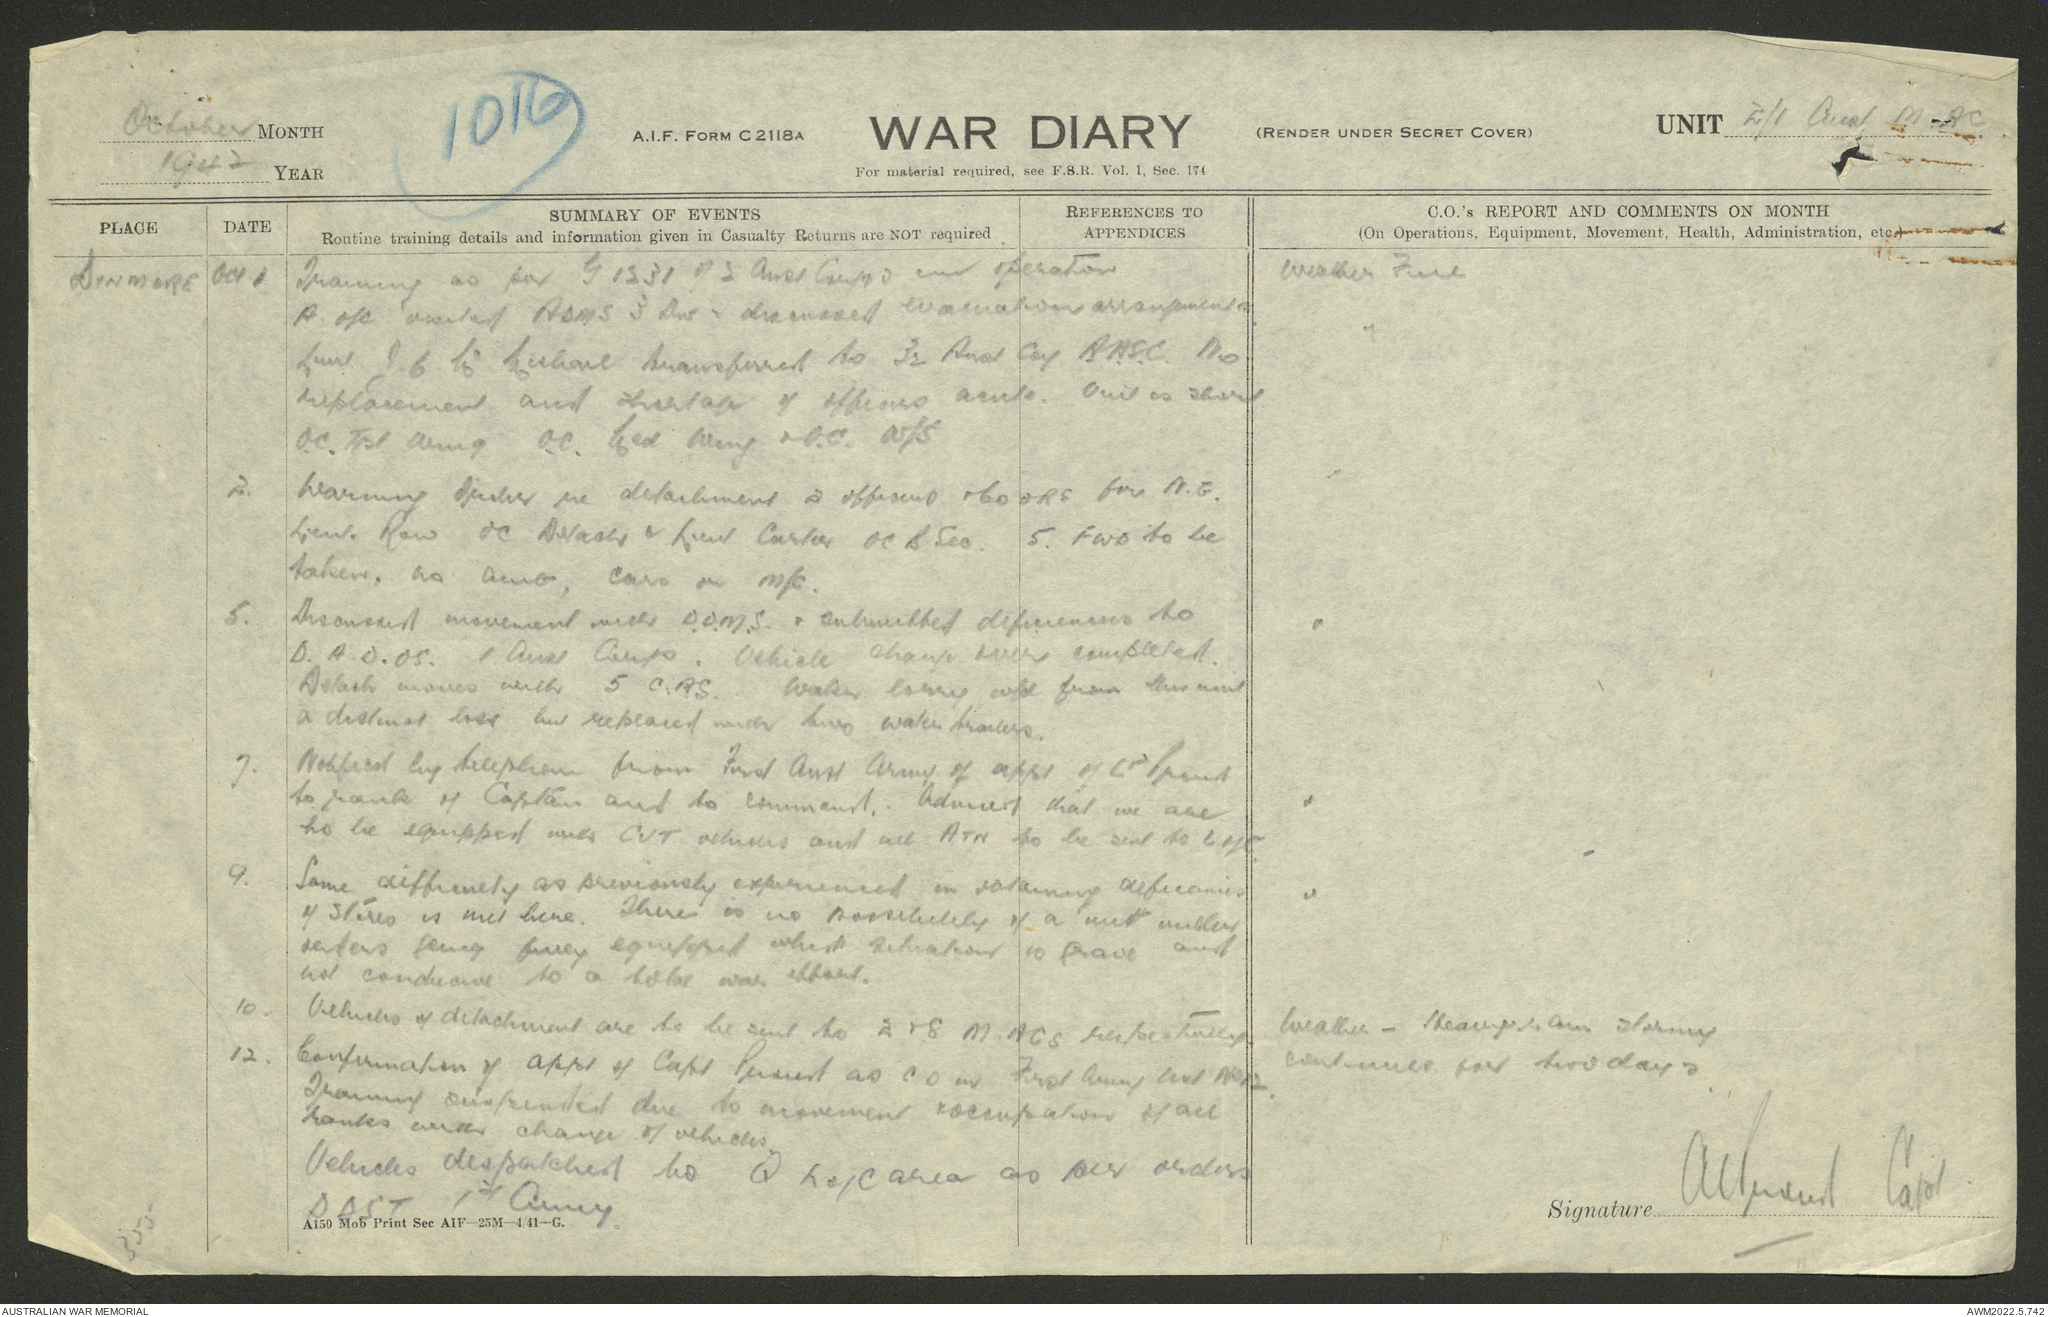 October MONTH
1942 YEAR
1016
A.I.F. FORM C2118A
WAR DIARY
(RENDER UNDER SECRET COVER)
For material required, see F.S.R. Vol. 1, Sec. 174
UNIT 2/1 Aust M.A.C.
PLACE
DATE
SUMMARY OF EVENTS
Routine training details and information given in Casualty Returns are NOT required
REFERENCES TO APPENDICES
C.O.'s REPORT AND COMMENTS ON MONTH
(On Operations, Equipment, Movement, Health, Administration, etc.)
DINMORE Oct 1 Training as per G 1331 of Aust Corps operation Weather Fine
visited ADMS 3 Div & discussed evacuation arrangements "
Lieut transferred to Aust Coy A.A.S.C. No
replacement and shortage of officers acute. Unit is short
O.C. Wing O.C. Wing & O.C. W/S
2. Warning Order re detachment 2 officers & 60 ORS for N.G. "
Lieut. Row OC Detach & Lieut Carter OC B Sec. 5. FWD to be
taken, no amb, cars or M/C.
5. Discussed movement with D.D.M.S. & submitted deficiencies to "
D.A.D.OS. 1 Aust Corps. Vehicle change over completed.
Detach moves with 5 C.A.S. Water lorry w/d from this unit
a distinct loss but replaced with two water trailers.
7. Notified by telephone from First Aust Army of appt of Lt
to rank of Captain and to command. Advised that we are "
to be equipped with CVT vehicles and all to be sent to
9. Same difficulty as previously experienced in obtaining deficiencies "
of stores is met here. There is no possibility of a unit under
orders being fully equipped which situation is grave and
not conducive to a total war effort.
10. Vehicles of detachment are to be sent to 2 & 8 M.ACS respectively. Weather – Heavy rain storms
12. Confirmation of appt of Capt as C O in First Army List No 12 continues for two days
Training suspended due to movement & occupation of all
ranks with change of vehicles.
Vehicles despatched to Q L of C area as per orders
DDST 1st Army.
A150 Mob Print Sec AIF—25M—4/41—G.
Signature Capt
355
AUSTRALIAN WAR MEMORIAL
AWM2022.5.742